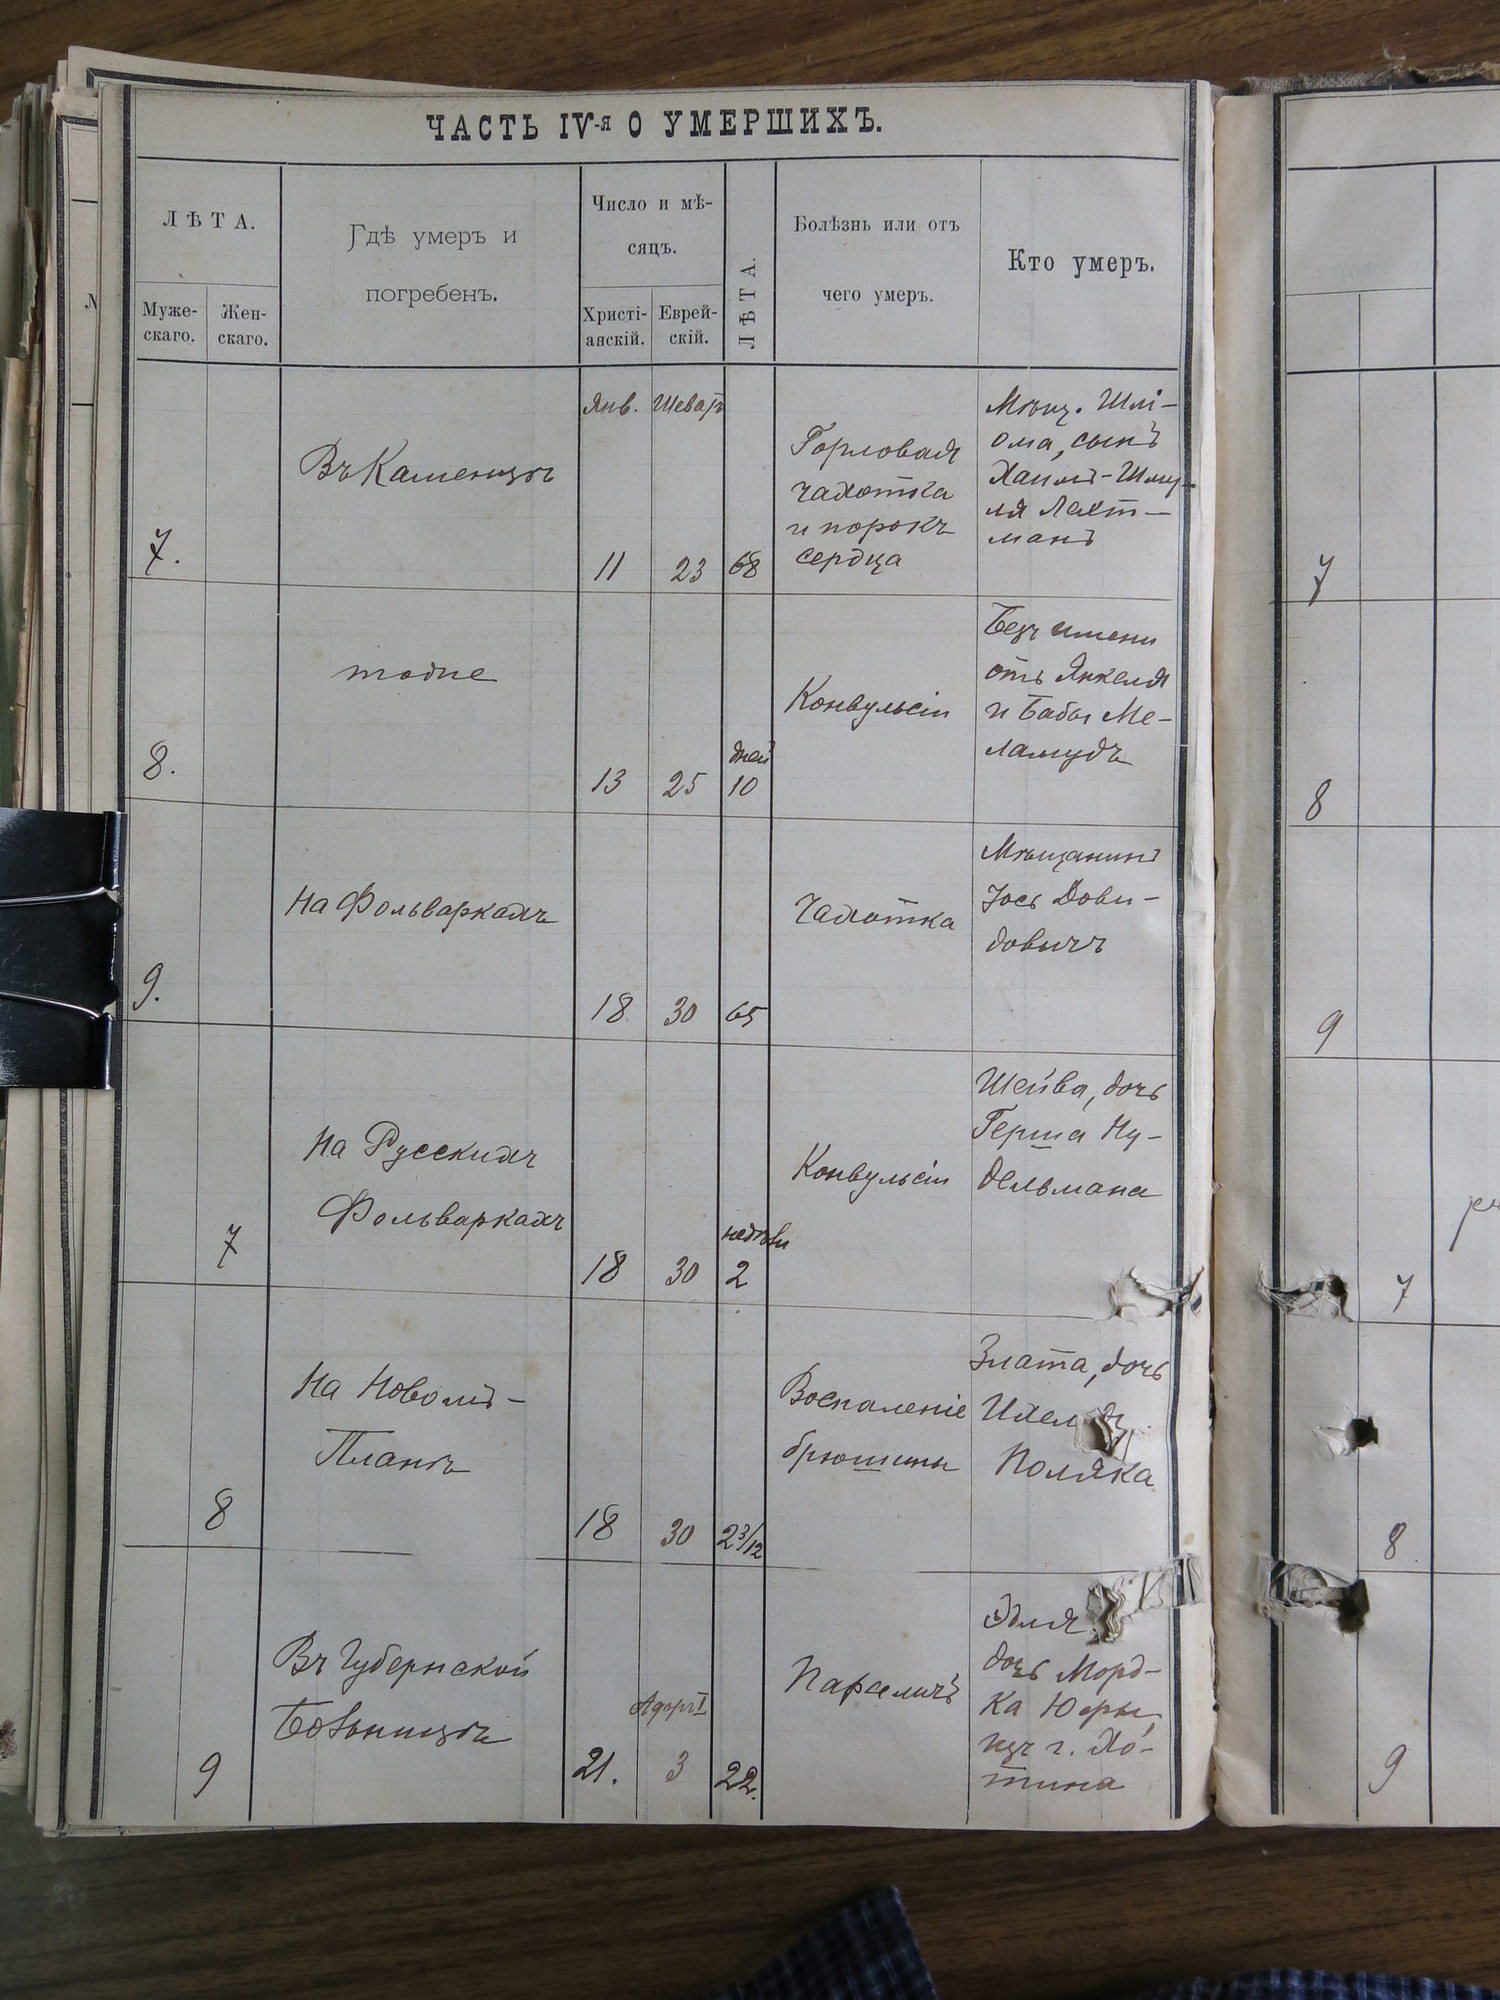 ЧАСТЬ IV-я О УМЕРШИХЪ.
ЛѢТА.
Муже-
скаго.
Жен-
скаго.
Гдѣ умеръ и
погребенъ.
Число и мѣ-
сяцъ.
Христі-
анскій.
Еврей-
скій.
ЛѢТА.
Болѣзнь или отъ
чего умеръ.
Кто умеръ.
7.
Въ Каменцѣ
Янв.
11
Шеватъ
23
68
Горловая
чахотка
и порокъ
сердца
Мѣщ. Шлі-
ома, сынъ
Хаимъ-Шму-
ля Лехт-
манъ
8.
тоже
13
25
дней
10
Конвульсіи
Безъ имени
отъ Янкеля
и Бабы Ме-
ламудъ
9.
На Фольваркахъ
18
30
65
Чахотка
Мѣщанинъ
Іось Дови-
довичъ
7
На Русскихъ
Фольваркахъ
18
30
недѣли
2
Конвульсіи
Шейва, дочь
Герша Ну-
дельмана
8
На Новомъ-
Планѣ
18
30
2 3/12
Воспаленіе
брюшины
Злата, дочь
Поляка
9
Въ Губернской
Больницѣ
21.
Адаръ I
3
22.
Эдля
дочь Морд-
ка Юры,
изъ г. Хо-
тина
№
7
8
9
7
8
9